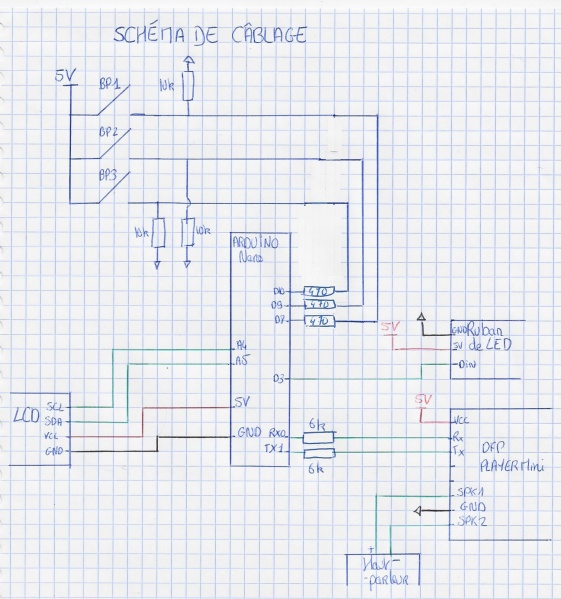 SCHÉMA DE CÂBLAGE
5V
BP1
10k
BP2
BP3
10k
10k
ARDUINO
Nano
D10
470
D9
470
D7
470
GND Ruban
5V
5V de LED
Din
A4
A5
D3
LCD
SCL
SDA
VCC
GND
5V
GND
RX0
TX1
6k
6k
5V
VCC
Rx
Tx
DFP
PLAYER Mini
SPK1
GND
SPK2
+
Haut-
-parleur